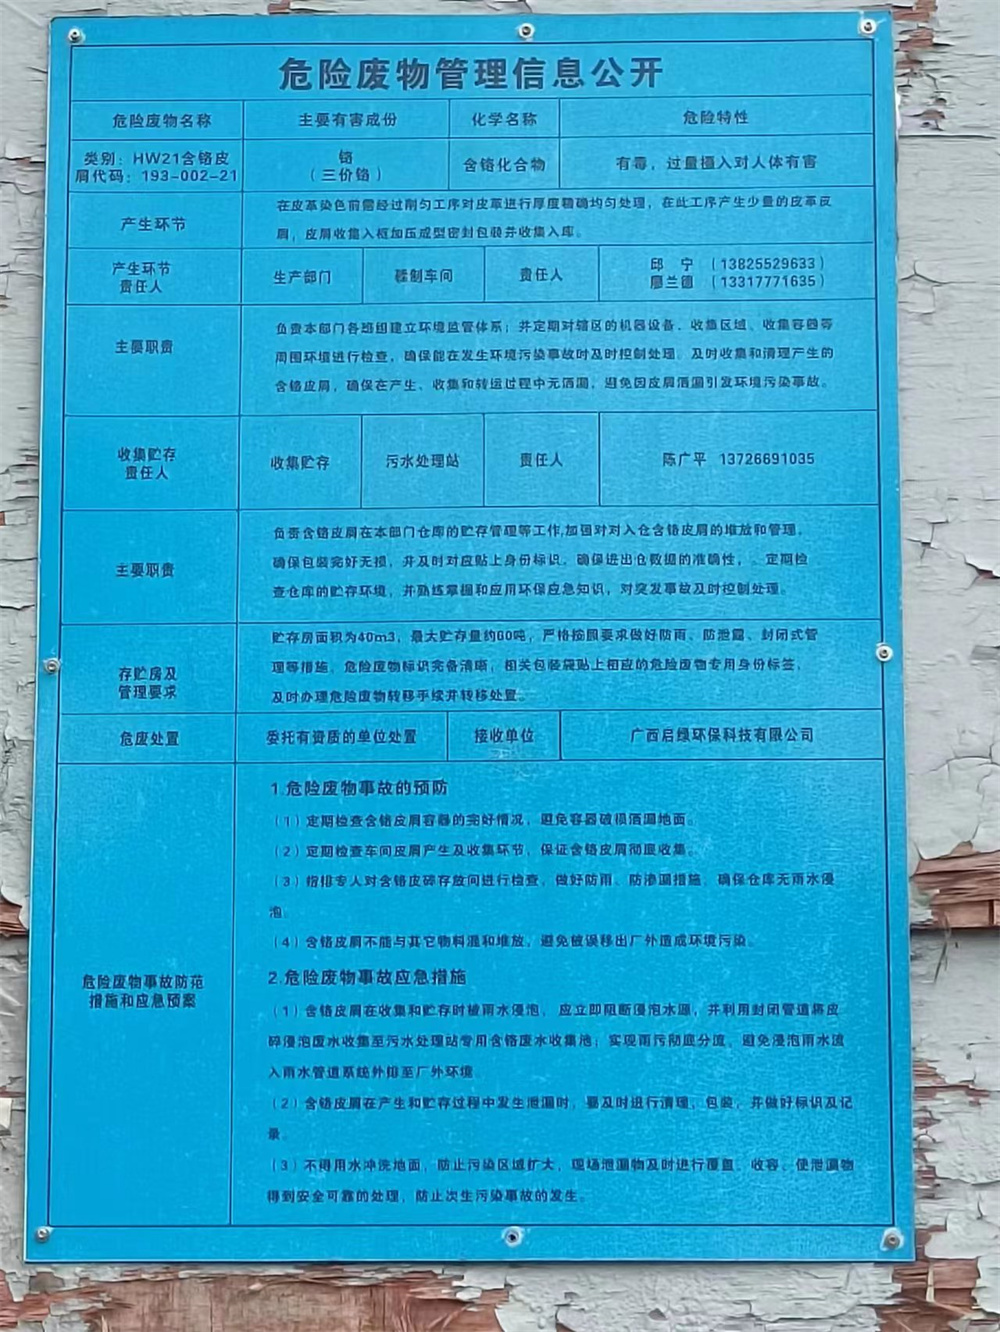 危险废物管理信息公开
危险废物名称 主要有害成份 化学名称 危险特性
类别：HW21含铬皮
屑代码：193-002-21
铬
（三价铬）
含铬化合物
有毒，过量摄入对人体有害
产生环节
在皮革染色前需经过削匀工序对皮革进行厚度精确均匀处理，在此工序产生少量的皮革皮
屑，皮屑收集入框加压成型密封包装并收集入库。
产生环节
责任人
生产部门 鞣制车间 责任人
邱 宁 （13825529633）
廖兰德 （13317771635）
主要职责
负责本部门各班组建立环境监管体系；并定期对辖区的机器设备、收集区域、收集容器等
周围环境进行检查，确保能在发生环境污染事故时及时控制处理。及时收集和清理产生的
含铬皮屑，确保在产生、收集和转运过程中无洒漏，避免因皮屑洒漏引发环境污染事故。
收集贮存
责任人
收集贮存 污水处理站 责任人 陈广平 13726691035
主要职责
负责含铬皮屑在本部门仓库的贮存管理等工作,加强对对入仓含铬皮屑的堆放和管理，
确保包装完好无损，并及时对应贴上身份标识，确保进出仓数据的准确性，。定期检
查仓库的贮存环境，并熟练掌握和应用环保应急知识，对突发事故及时控制处理。
存贮房及
管理要求
贮存房面积为40m3，最大贮存量约60吨，严格按照要求做好防雨、防泄露、封闭式管
理等措施，危险废物标识完备清晰，相关包装袋贴上相应的危险废物专用身份标签，
及时办理危险废物转移手续并转移处置。
危废处置 委托有资质的单位处置 接收单位 广西启绿环保科技有限公司
危险废物事故防范
措施和应急预案
1.危险废物事故的预防
（1）定期检查含铬皮屑容器的完好情况，避免容器破损洒漏地面。
（2）定期检查车间皮屑产生及收集环节，保证含铬皮屑彻底收集。
（3）指排专人对含铬皮碎存放间进行检查，做好防雨、防渗漏措施，确保仓库无雨水浸
泡
（4）含铬皮屑不能与其它物料混和堆放，避免被误移出厂外造成环境污染。
2.危险废物事故应急措施
（1）含铬皮屑在收集和贮存时被雨水浸泡， 应立即阻断浸泡水源，并利用封闭管道将皮
碎浸泡废水收集至污水处理站专用含铬废水收集池；实现雨污彻底分流，避免浸泡雨水流
入雨水管道系统外排至厂外环境。
（2）含铬皮屑在产生和贮存过程中发生泄漏时，要及时进行清理，包装，并做好标识及记
录。
（3）不得用水冲洗地面，防止污染区域扩大，现场泄漏物及时进行覆盖、收容，使泄漏物
得到安全可靠的处理，防止次生污染事故的发生。